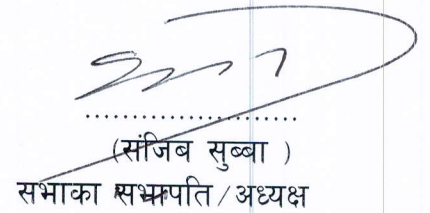 ........................
(संजिब सुब्बा )
सभाका सभापति/अध्यक्ष